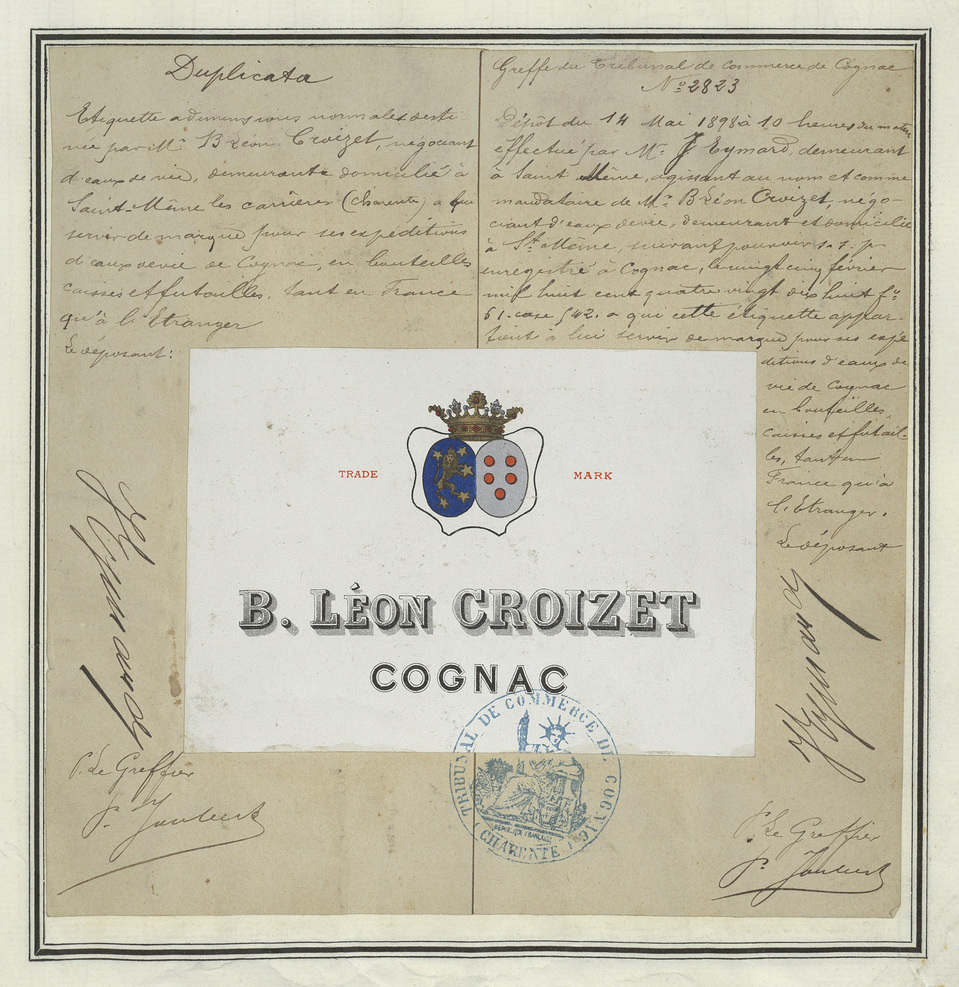 Duplicata
Etiquette a dimensions normales desti-
née par Mr B Léon Croizet, négociant
d'eaux de vie, demeurant domicilié à
Saint-Même les carrières (Charente) à
servir de marque pour ses expéditions
d'eaux de vie de Cognac, en bouteilles
caisses et futailles, tant en France
qu'à l'Etranger
Le déposant:
Eymard
P. Le Greffier
Greffe du Tribunal de commerce de Cognac
No 2823
Dépôt du 14 Mai 1898 à 10 heures du matin
effectué par Mr J Eymard, demeurant
à Saint Même, agissant au nom et comme
mandataire de Mr B Léon Croizet, négo-
ciant d'eaux de vie, demeurant et domicilié
à St Même, suivant pouvoir s.s.p.
enregistré à Cognac, le vingt cinq février
mil huit cent quatre vingt dix huit fo
61. case 542. a qui cette étiquette appar-
tient à lui servir de marque pour ses expé
ditions d'eaux de
vie de Cognac
en bouteilles,
caisses et futail-
les, tant en
France qu'à
l'Etranger.
Le déposant
Eymard
P. Le Greffier
TRADE MARK
B. LÉON CROIZET
COGNAC
TRIBUNAL DE COMMERCE DE COGNAC
RÉPUBLIQUE FRANÇAISE
(CHARENTE)